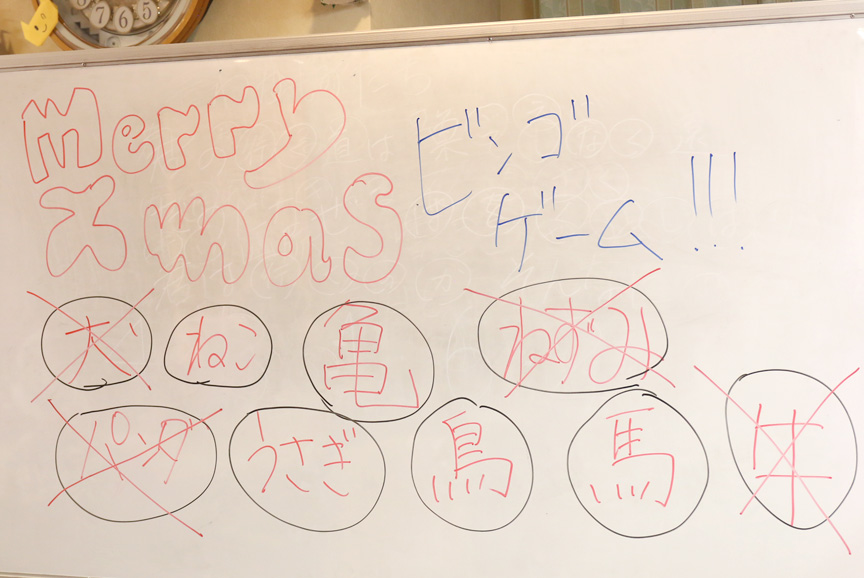 Merry
Xmas
ビンゴ
ゲーム!!!
犬 ねこ 亀 ねずみ
パンダ うさぎ 鳥 馬 牛
7 6 5